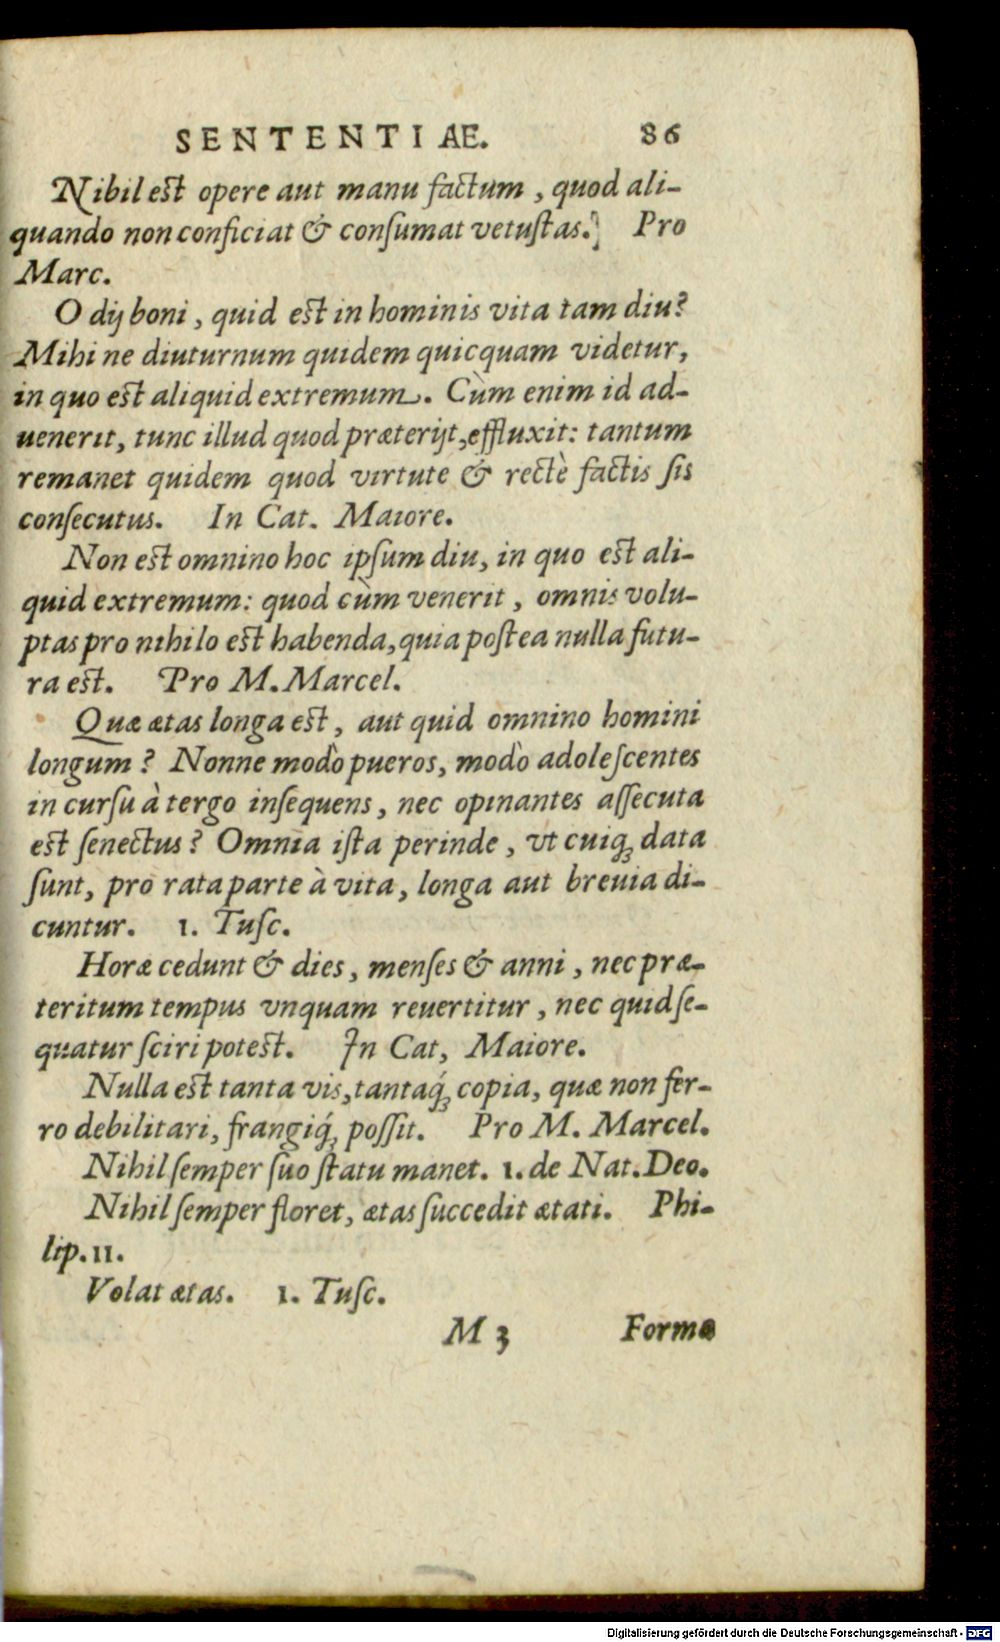 SENTENTIAE. 86
Nibil est opere aut manu factum, quod ali-
quando non conficiat & consumat vetustas. Pro
Marc.
O dij boni, quid est in hominis vita tam diu?
Mihi ne diuturnum quidem quicquam videtur,
in quo est aliquid extremum. Cùm enim id ad-
uenerit, tunc illud quod præterijt, effluxit: tantum
remanet quidem quod virtute & rectè factis sis
consecutus. In Cat. Maiore.
Non est omnino hoc ipsum diu, in quo est ali-
quid extremum: quod cùm venerit, omnis volu-
ptas pro nihilo est habenda, quia postea nulla futu-
ra est. Pro M. Marcel.
Quæ ætas longa est, aut quid omnino homini
longum? Nonne modò pueros, modò adolescentes
in cursu à tergo insequens, nec opinantes assecuta
est senectus? Omnia ista perinde, vt cuiqꝫ data
sunt, pro rata parte à vita, longa aut breuia di-
cuntur. 1. Tusc.
Horæ cedunt & dies, menses & anni, nec præ-
teritum tempus vnquam reuertitur, nec quid se-
quatur sciri potest. In Cat, Maiore.
Nulla est tanta vis, tantaq́ꝫ copia, quæ non fer-
ro debilitari, frangiq́ꝫ possit. Pro M. Marcel.
Nihil semper suo statu manet. 1. de Nat. Deo.
Nihil semper floret, ætas succedit ætati. Phi-
lip. 11.
Volat ætas. 1. Tusc.
M 3 Formæ
Digitalisierung gefördert durch die Deutsche Forschungsgemeinschaft - DFG